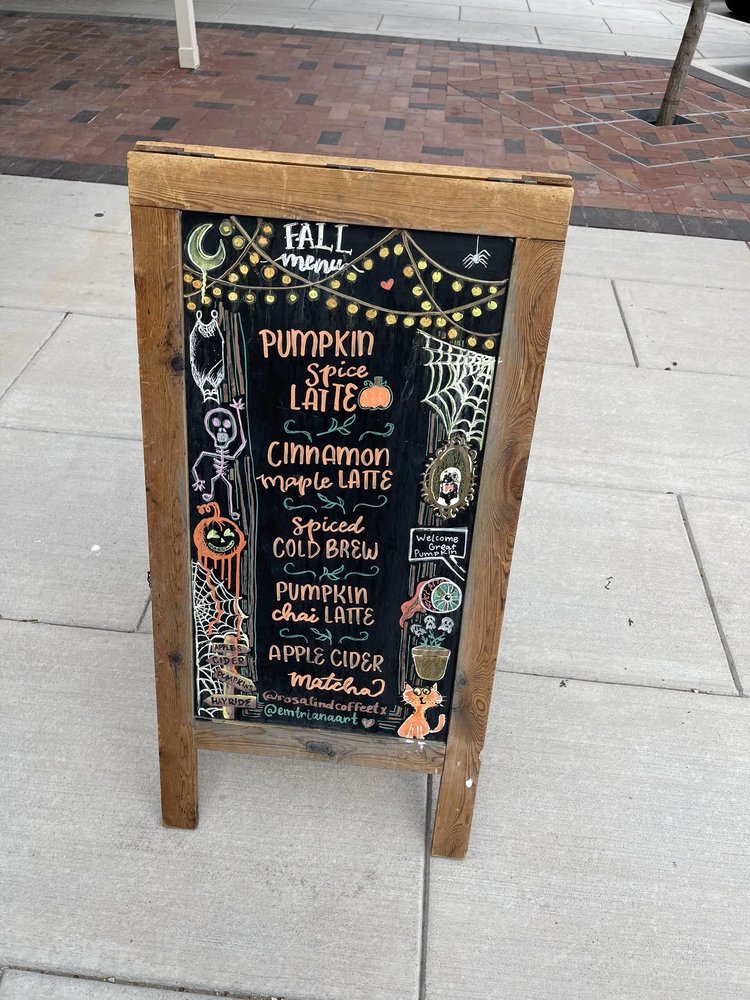 FALL
menu
PUMPKIN
Spice
LATTE
CINNAMON
maple LATTE
spiced
COLD BREW
Welcome
Great
Pumpkin
PUMPKIN
chai LATTE
APPLE CIDER
matcha
APPLES
CIDER
PUMPKINS
HAYRIDE
@rosalindcoffeetx
@emtrianaart